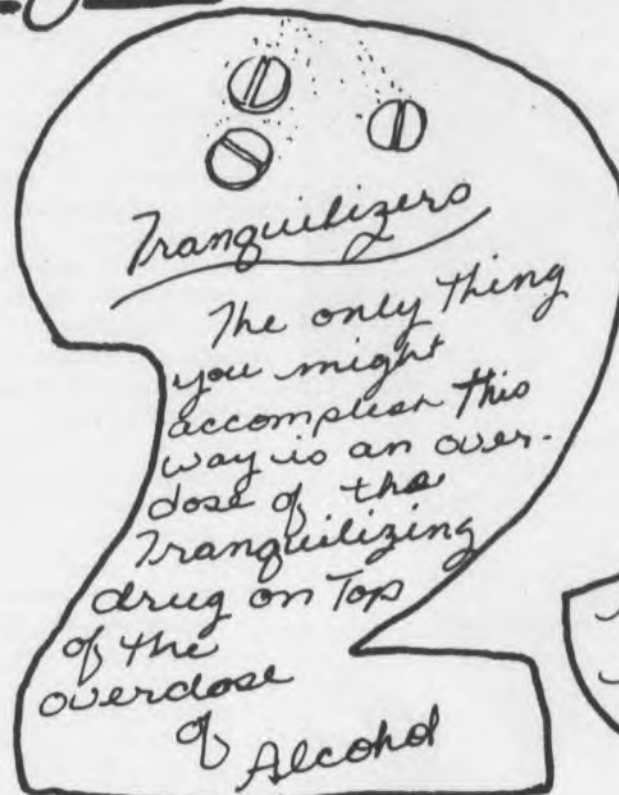 Tranquilizers
The only Thing
you might
accomplish This
way is an over-
dose of the
Tranquilizing
drug on Top
of the
overdose
of
Alcohol